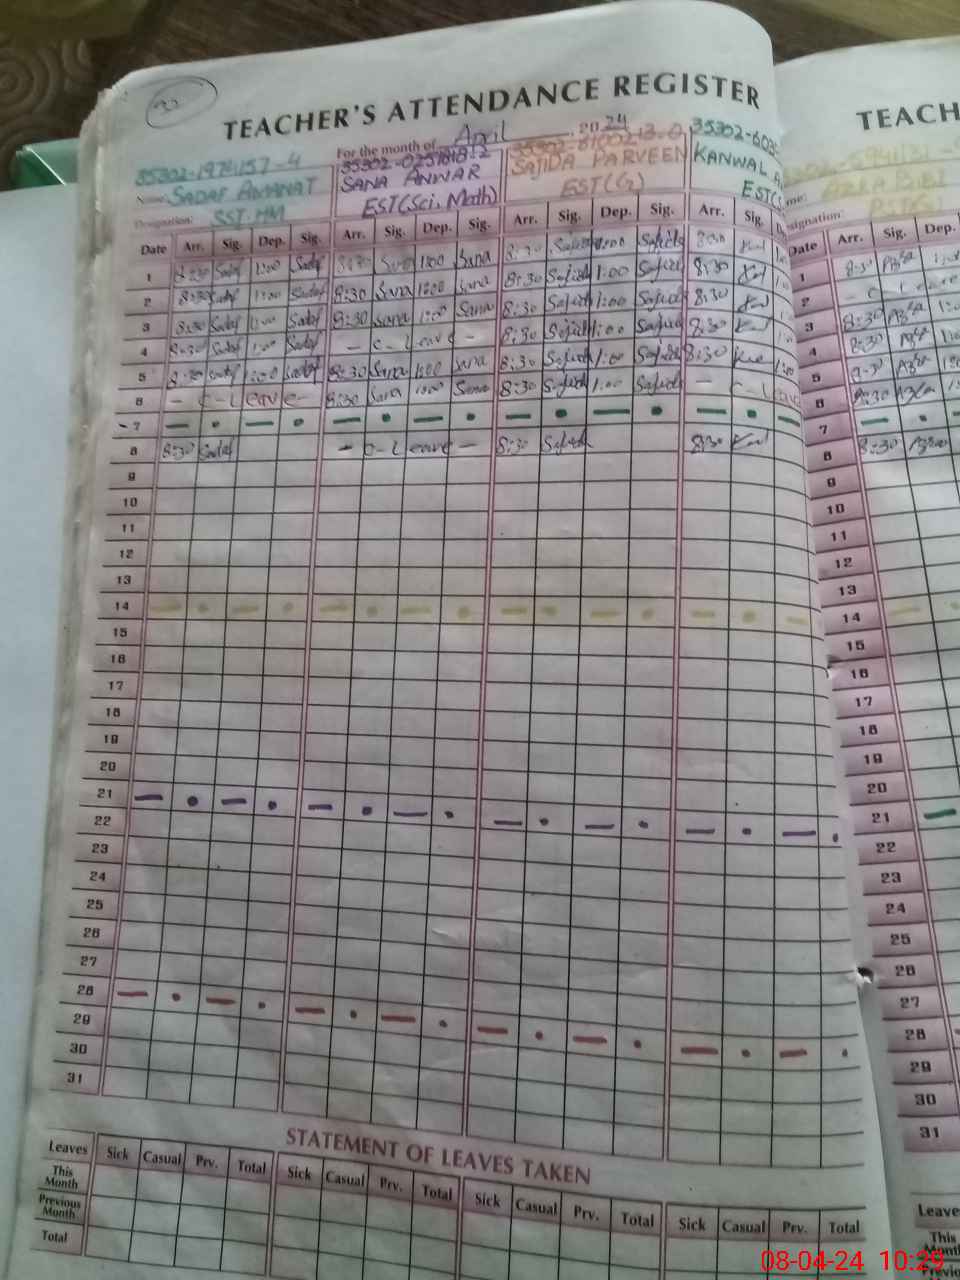 TEACHER'S ATTENDANCE REGISTER
For the month of April 2024
35302-1974157-4
Name: SADAF AMANAT
Designation: SST.HM
SANA ANWAR
EST(Sci. Math)
SAJIDA PARVEEN
EST(G)
35302-603
KANWAL A
EST(S
Date Arr. Sig. Dep. Sig. Arr. Sig. Dep. Sig. Arr. Sig. Dep. Sig. Arr. Sig. D
1 8:30 Sadaf 1:00 Sadaf 8:30 Sana 1:00 Sana 8:30 Sajida 1:00 Sajida 8:30
2 8:30 Sadaf 1:00 Sadaf 8:30 Sana 1:00 Sana 8:30 Sajida 1:00 Sajida 8:30
3 8:30 Sadaf 1:00 Sadaf 8:30 Sana 1:00 Sana 8:30 Sajida 1:00 Sajida 8:30
4 8:30 Sadaf 1:00 Sadaf - C-Leave - 8:30 Sajida 1:00 Sajida 8:30
5 8:30 Sadaf 1:00 Sadaf 8:30 Sana 1:00 Sana 8:30 Sajida 1:00 Sajida 8:30
6 - C-Leave - 8:30 Sana 1:00 Sana 8:30 Sajida 1:00 Sajida - C-Leave
7
8 8:30 Sadaf - C-Leave - 8:30 Sajida 8:30
9
10
11
12
13
14
15
16
17
18
19
20
21
22
23
24
25
26
27
28
29
30
31
STATEMENT OF LEAVES TAKEN
Leaves Sick Casual Prv. Total Sick Casual Prv. Total Sick Casual Prv. Total Sick Casual Prv. Total
This Month
Previous Month
Total
TEACH
me:
signation:
Date Arr. Sig. Dep.
1 8:30
2 - C-Leave
3 8:30
4 8:30
5
6 8:30
7
8 8:30
9
10
11
12
13
14
15
16
17
18
19
20
21
22
23
24
25
26
27
28
29
30
31
Leave
This
Month
Previo
08-04-24 10:29